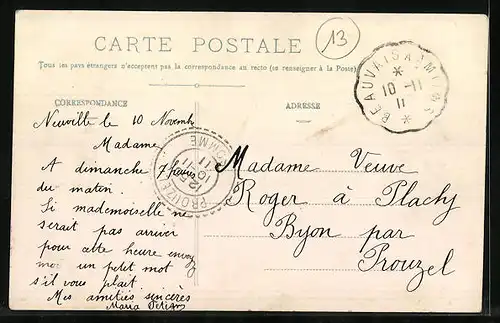 CARTE POSTALE
13
Tous les pays étrangers n'acceptent pas la correspondance au recto (se renseigner à la Poste)
CORRESPONDANCE
ADRESSE
BEAUVAIS A AMIENS
10 -11
11
PROUZEL
SOMME
10-11
11
Neuville le 10 Novemb
Madame
A dimanche 7
du matin.
Si mademoiselle ne
serait pas arriver
pour cette heure envoy
moi un petit mot
s'il vous plait.
Mes amitiés sincères
Maria
Madame Veuve
Roger à Plachy
Byon par
Prouzel